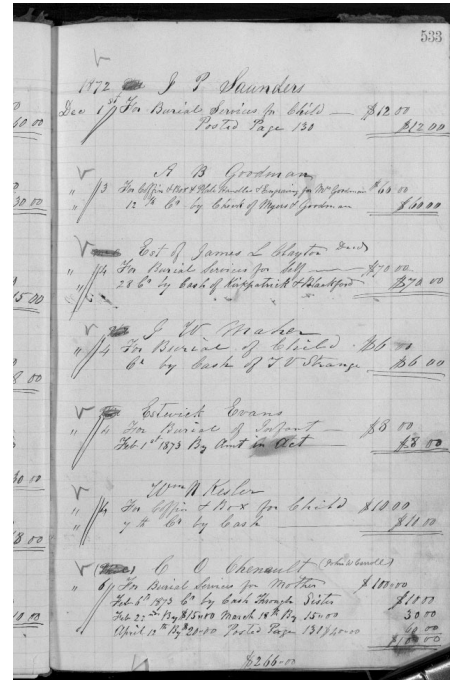 533
1872 J P Saunders
Dec 1st For Burial Services for Child — $12 00
Posted Page 130 $12 00
A B Goodman
" 3 For Coffin & Box & Plate Handles & Engraving for Mr Goodman $60 00
12th Cr by Check of Myers & Goodman $60 00
Est of James L Clayton Decd
" 4 For Burial Services for Self — $70 00
28 Cr by Cash of Kirkpatrick & Blackford $70 00
J W Maher
" 4 For Burial of Child $6
Cr by Cash of T V Strange $6 00
Estwick Evans
" 4 For Burial of Infant — $8 00
Feb 1st 1873 By Amt in Act $8 00
Wm N Kesler
" For Coffin & Box for Child $10.00
7th Cr by Cash $10 00
C O Chenault
" 6 For Burial Services for Mother $100.00
Feb 6th 1873 Cr by Cash Through Sister $10 00
Feb 22nd By $15.00 March 18th By 15.00 30 00
April 12th By $20.00 Posted Page 131 $40.00 60 00
$100 00
$266.00
60.00
30 00
15 00
8 00
30 00
18 00